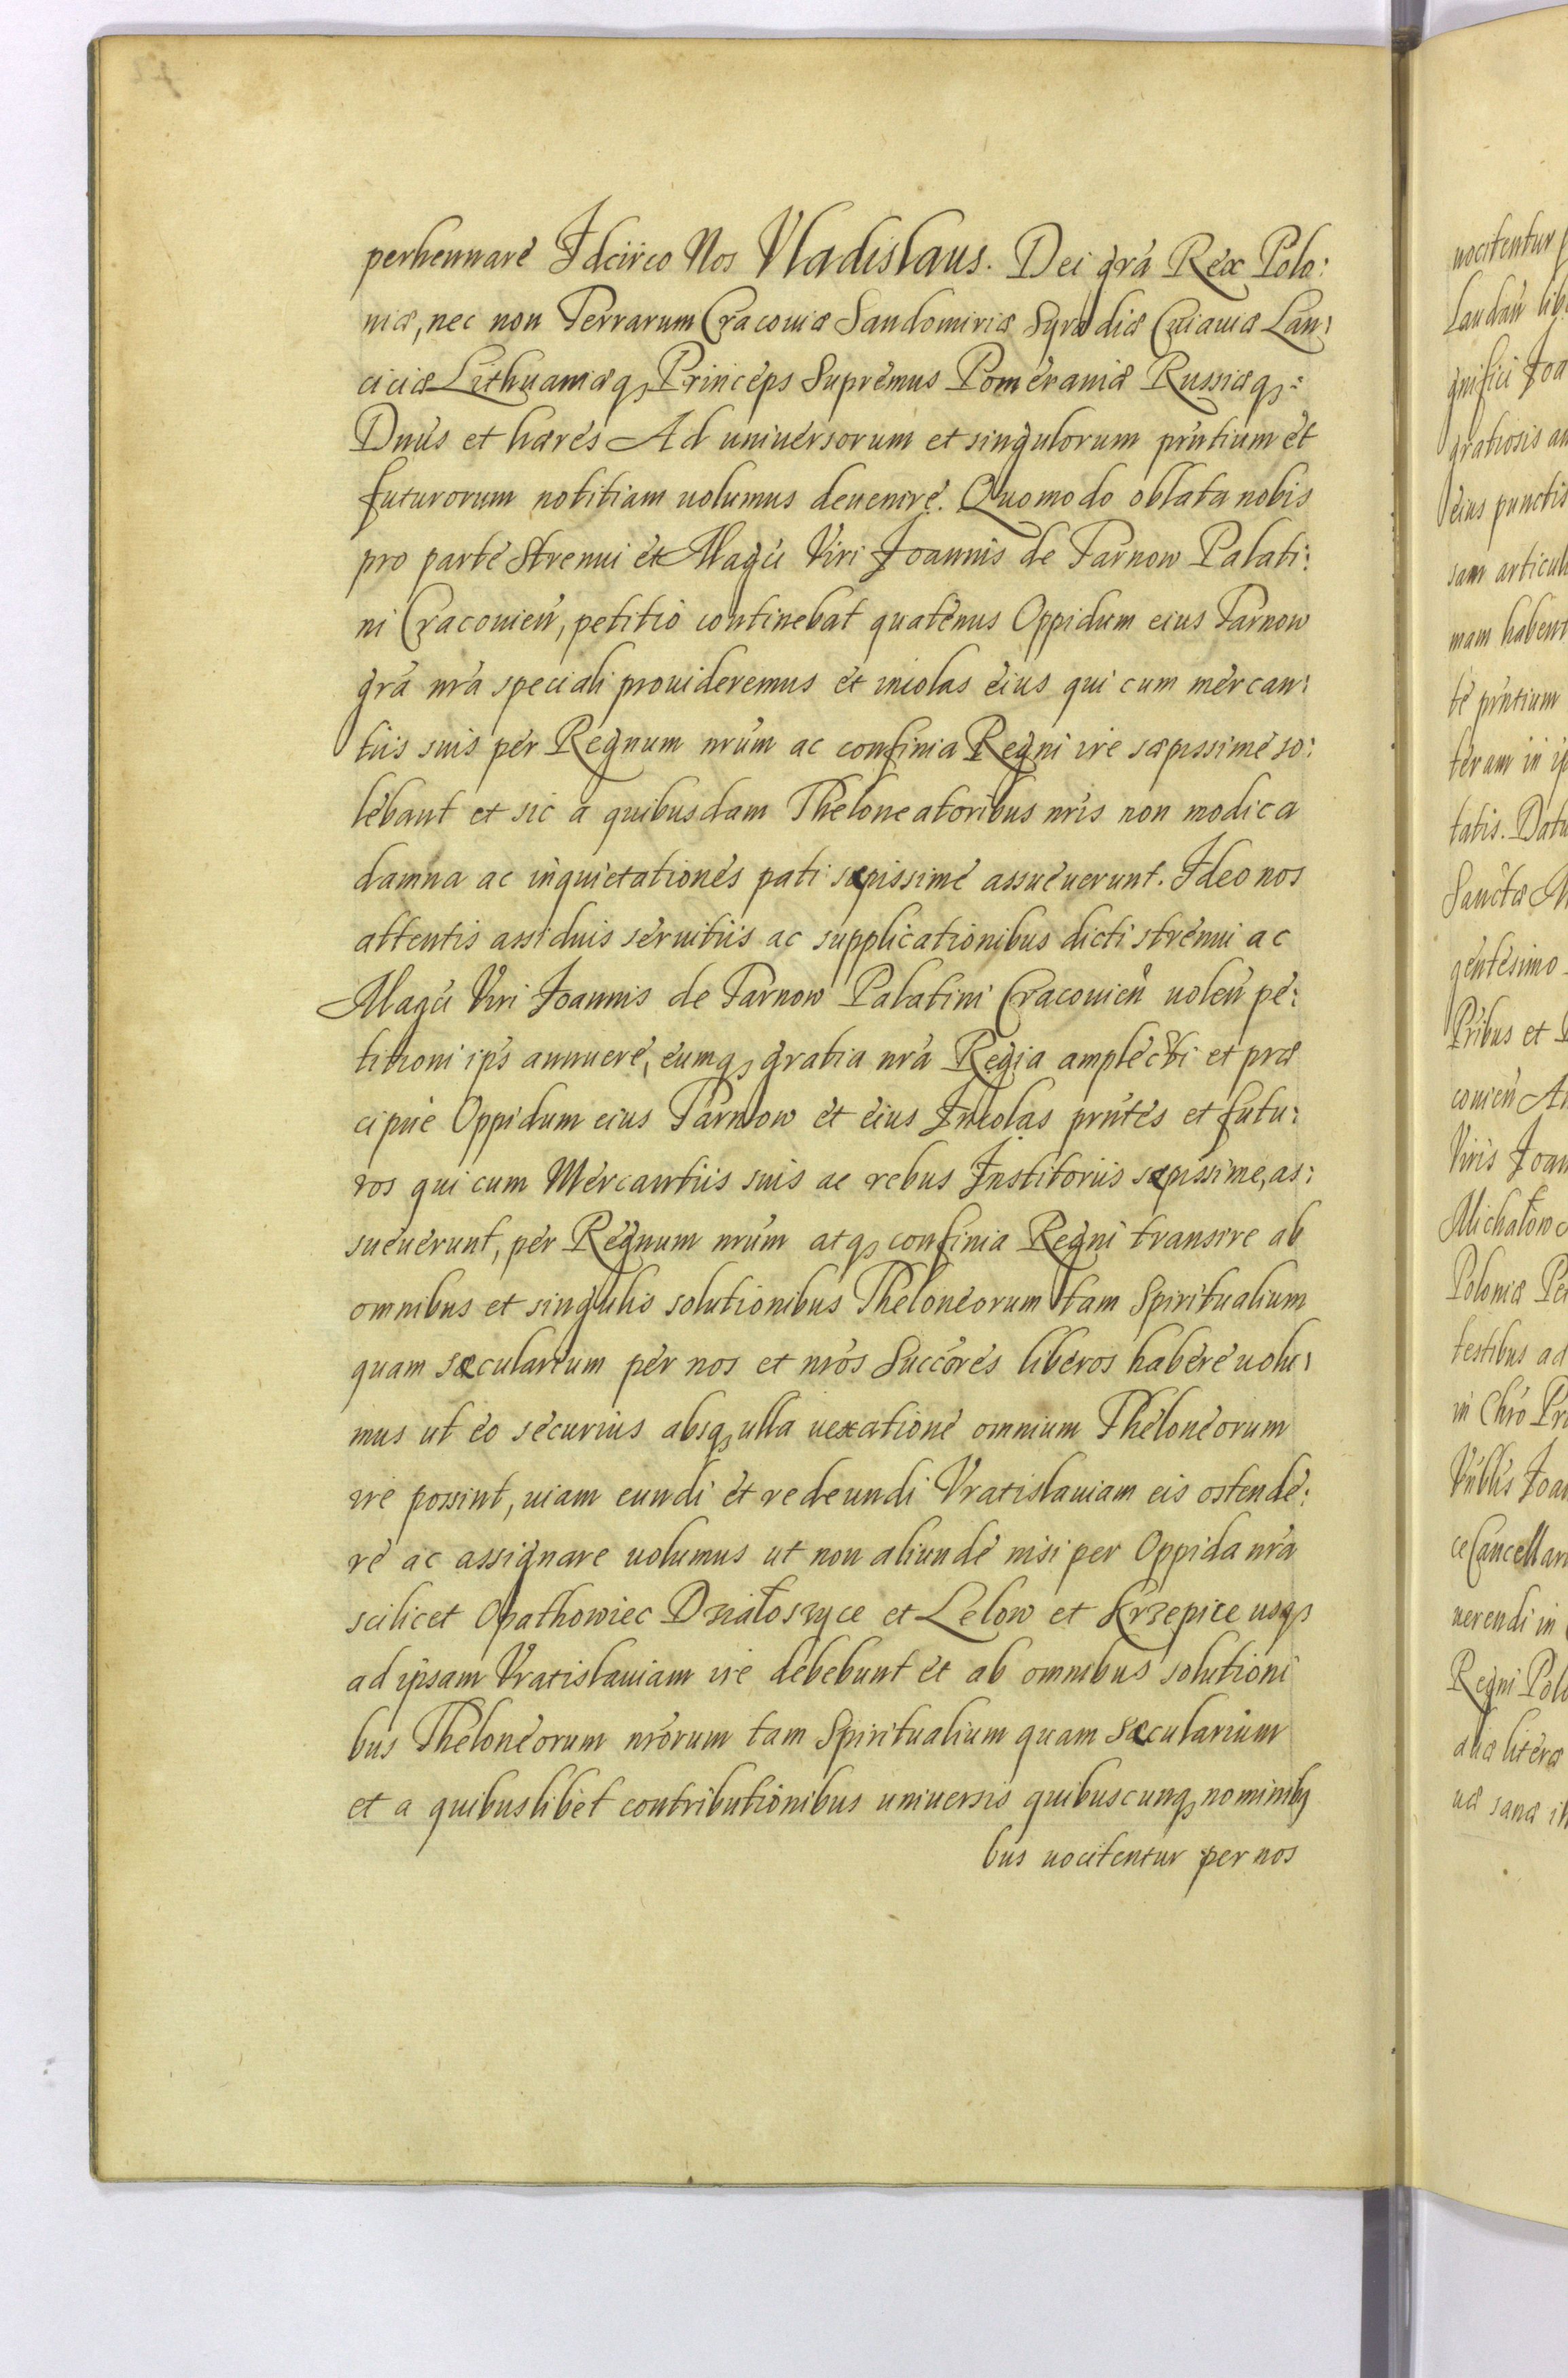 perhennare Idcirco Nos Vladislaus. Dei gra Rex Polo:
niæ, nec non Terrarum Cracouiæ Sandomiriæ Syradiæ Cuiauiæ Lan:
ciciæ Lithuaniæq, Princeps Supremus Pomeraniæ Russiæq,:
Dnus et hæres Ad uniuersorum et singulorum pntium et
futurorum notitiam uolumus deuenire. Quomodo oblata nobis
pro parte Strenui et Magci Viri Joannis de Tarnow Palati:
ni Cracouien, petitio continebat quatenus Oppidum eius Tarnow
gra nra speciali prouideremus et incolas eius qui cum mercan:
tiis suis per Regnum nrum ac confinia Regni ire sæpissime so:
lebant et sic a quibusdam Theloneatoribus nris non modica
damna ac inquietationes pati sæpissime assueuerunt. Ideo nos
attentis assiduis seruitiis ac supplicationibus dicti strenui ac
Magci Viri Joannis de Tarnow Palatini Cracouien uolen pe:
titioni ips annuere, eumq, gratia nra Regia amplecti et præ
cipue Oppidum eius Tarnow et eius Incolas pntes et futu:
ros qui cum Mercantiis suis ac rebus Institoriis sæpissime, as:
sueuerunt, per Regnum nrum atq, confinia Regni transire ab
omnibus et singulis solutionibus Theloneorum tam Spiritualium
quam sæcularium per nos et nros Succores liberos habere uolu:
mus ut eo securius absq, ulla uexatione omnium Theloneorum
ire possint, uiam eundi et redeundi Vratislauiam eis ostende:
re ac assignare uolumus ut non aliunde nisi per Oppida nra
scilicet Opathowiec Działoszyce et Lelow et Krzepice usq,
ad ipsam Vratislauiam ire debebunt et ab omnibus solutioni
bus Theloneorum nrorum tam Spiritualium quam sæcularium
et a quibuslibet contributionibus uniuersis quibuscunq, nominibq
bus uocitentur per nos
uocitentur
Laudan lib
gnifici Joa
gratiosis an
eius punctis
sam articul
mam habent
te pntium
teram in ip
tatis. Datu
Sanctæ M
gentesimo
Pribus et
couien
Viris Joan
Michałow
Poloniæ Pe
testibus ad
in Chro Pr
Vnblis Joan
ce Cancellari
uerendi in
Regni Polo
literæ
sana